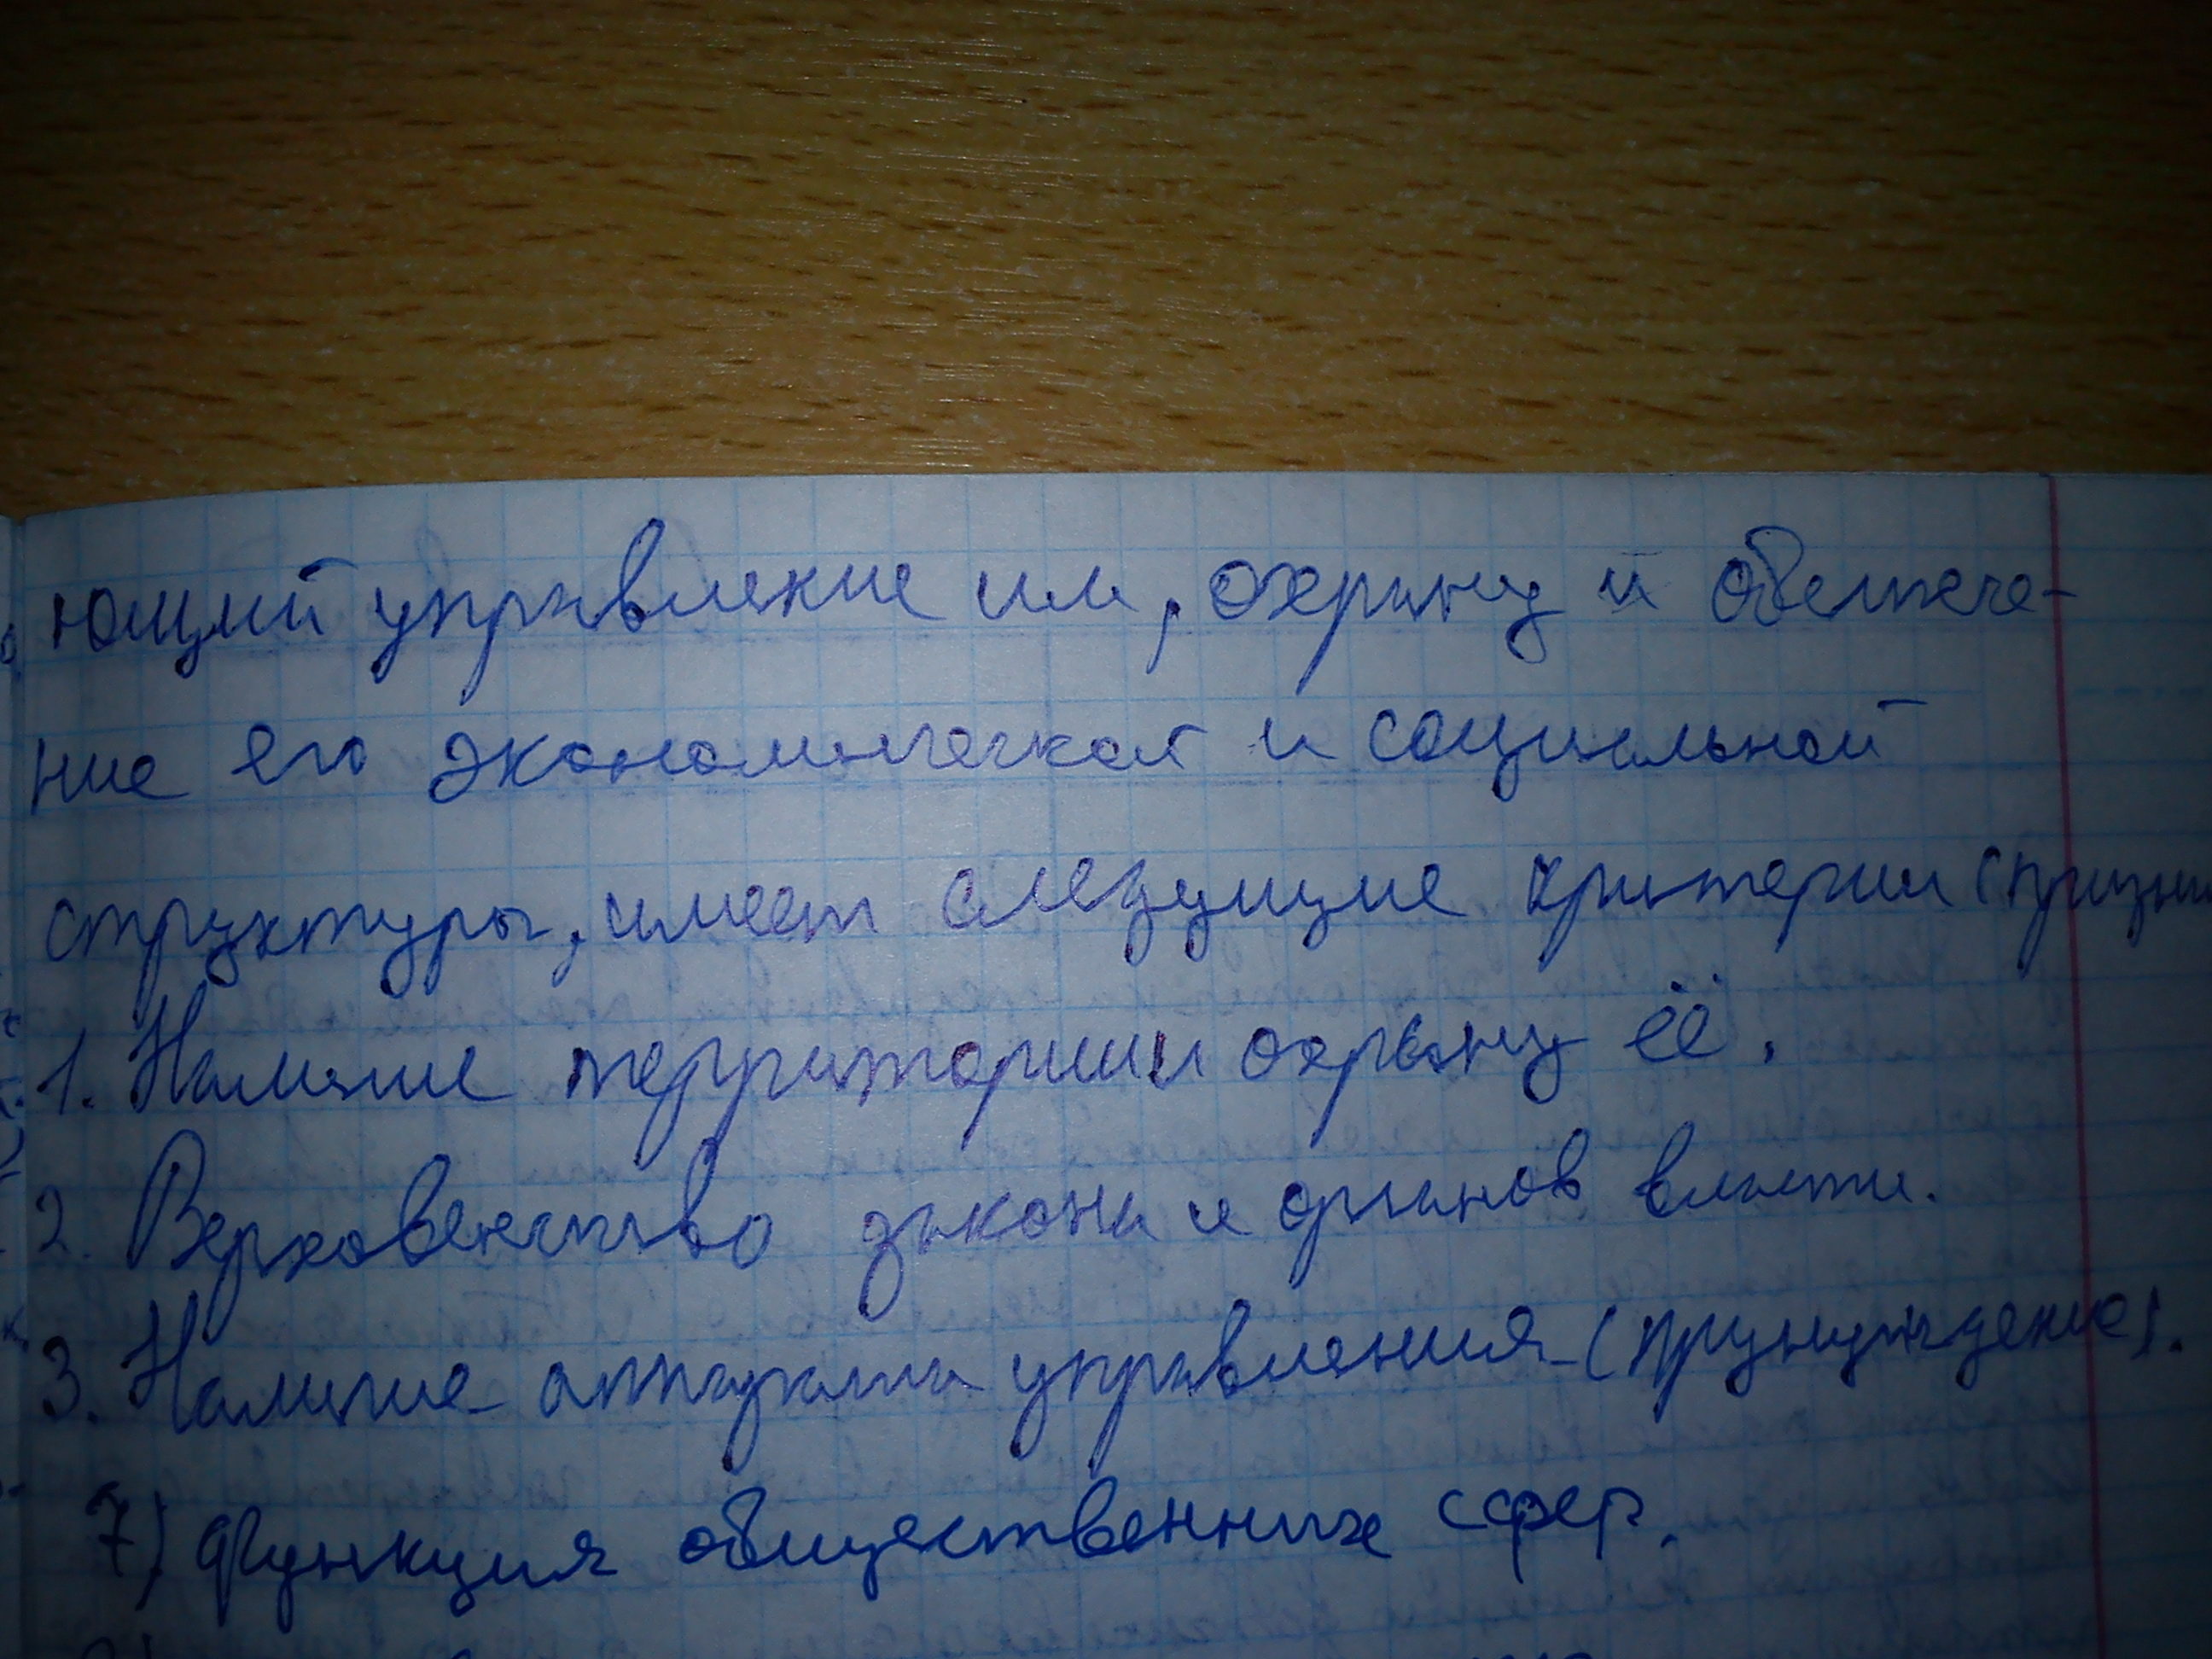 ющий управление им, охрану и обеспече-
ние его экономической и социальной
структуры, имеет следующие критерии (призна
1. Наличие территории и охрану её.
2. Верховенство закона и органов власти.
3. Наличие аппарата управления (принуждение).
7) Функция общественных сфер.